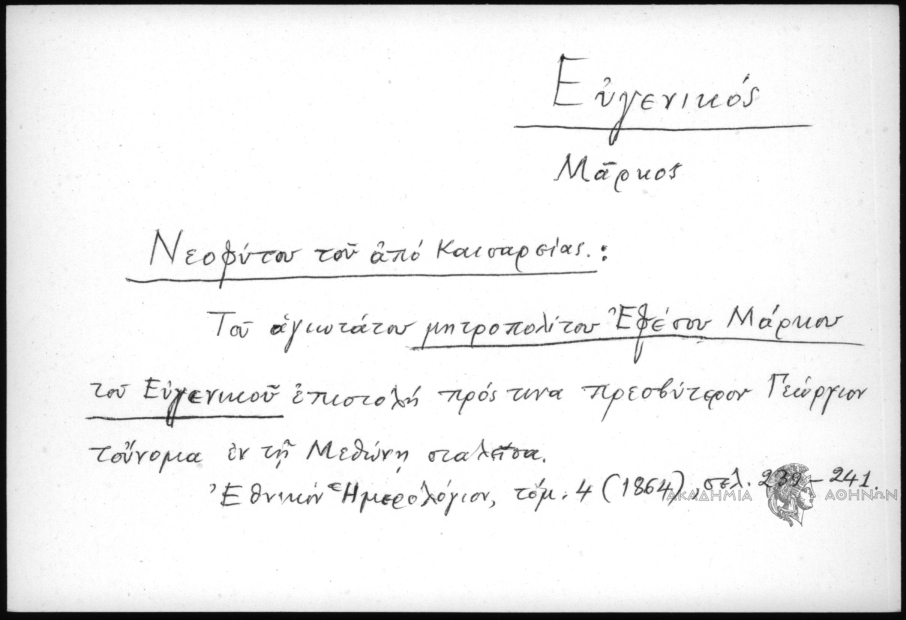 Εὐγενικός
Μᾶρκος
Νεοφύτου τοῦ ἀπό Καισαρείας.:
Τοῦ ἁγιωτάτου μητροπολίτου Ἐφέσου Μάρκου
τοῦ Εὐγενικοῦ ἐπιστολή πρός τινα πρεσβύτερον Γεώργιον
τοὔνομα ἐν τῇ Μεθώνῃ σταλεῖσα.
Ἐθνικόν Ἡμερολόγιον, τόμ. 4 (1864), σελ. 239-241.
ΑΚΑΔΗΜΙΑ ΑΘΗΝΩΝ